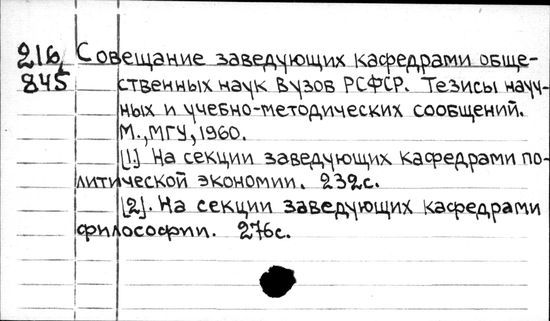 216 Совещание заведующих кафедрами обще-
845 ственных наук вузов РСФСР. Тезисы науч-
ных и учебно-методических сообщений.
М., МГУ, 1960.
[1.] На секции заведующих кафедрами по-
литической экономии. 232с.
[2]. На секции заведующих кафедрами
философии. 276с.